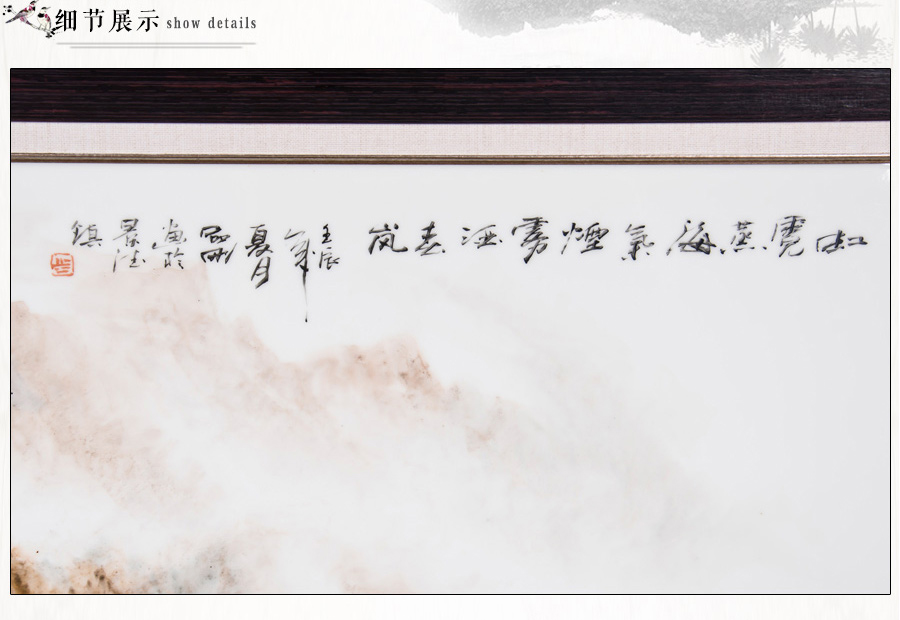 细节展示 show details
虹霓蒸海氣煙雾涵春岚
壬辰年夏月
畫於景德鎮